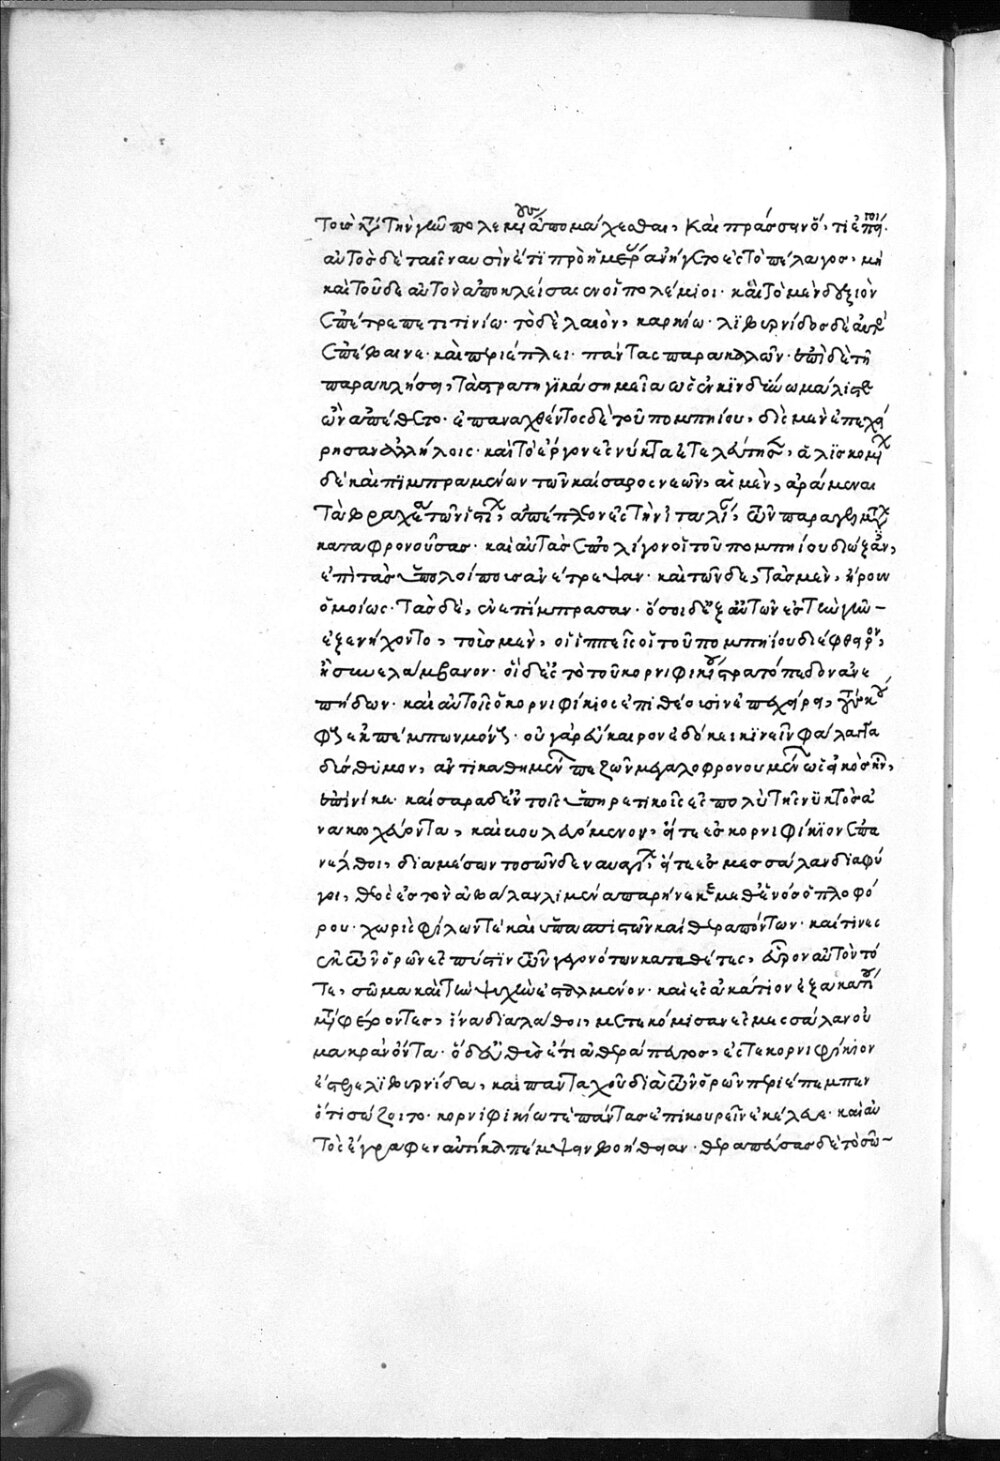 τοὺς κατὰ τὴν γῆν πολεμίους ἀπομάχεσθαι, καὶ πράσσειν ὅ, τι ἐπείγοι.
αὐτὸς δὲ ταῖς ναυσὶν ἔτι πρὸ ἡμέρας ἀνήγετο ἐς τὸ πέλαγος, μὴ
καὶ τοῦδε αὐτὸν ἀποκλείσαιεν οἱ πολέμιοι. καὶ τὸ μὲν δεξιὸν
ἐπέτρεπε τιτινίω. τὸ δὲ λαιὸν, καρκίω. λιβυρνίδος δὲ αὐτὸς
ἐπέβαινε. καὶ περιέπλει. πάντας παρακαλῶν. ἐπὶ δὲ τῆ
παρακλήσει, τὰ στρατηγικὰ σημεῖα ὡς ἐν κινδύνω μάλιστα
ὢν ἀπέθετο. ἐπαναχθέντος δὲ τοῦ πομπηίου, δὶς μὲν ἐπεχεί
ρησαν ἀλλήλοις. καὶ τὸ ἔργον ἐς νύκτα ἐτελεύτησεν, ἁλισκομένων
δὲ καὶ πιμπραμένων τῶν καίσαρος νεῶν, αἱ μὲν, ἀράμεναι
τὰ βραχέα τῶν ἱστίων, ἀπέπλεον ἐς τὴν ἰταλίαν, τῶν παραγγελμάτων
καταφρονοῦσαι. καὶ αὐτὰς ἐπ' ὀλίγον οἱ τοῦ πομπηίου διώξαντες,
ἐπὶ τὰς ὑπολοίπους ἀνέτρεψαν. καὶ τῶνδε, τὰς μὲν, ἥρουν
ὁμοίως. τὰς δὲ, ἐνεπίμπρασαν. ὅσοι δ' ἐξ αὐτῶν ἐς τὴν γῆν
ἐξενήχοντο, τοὺς μὲν, οἱ ἱππεῖς οἱ τοῦ πομπηίου διέφθειρον,
ἢ συνελάμβανον. οἱ δὲ ἐς τὸ τοῦ κορνιφικίου στρατόπεδον ἀνε
πήδων. καὶ αὐτοῖς ὁ κορνιφίκιος ἐπιθέουσιν ἐπεχείρει, τοὺς κού
φους ἐκπέμπων μόνους. οὐ γὰρ εὔκαιρον ἐδόκει κινεῖν φάλαγγα
δύσθυμον, ἀντικαθημένων πεζῶν μεγαλοφρονουμένων ὡς εἰκὸς ἦν,
ἐπὶ νίκη. καίσαρα δ' ἐν τοῖς ὑπηρετικοῖς ἐς πολὺ τῆς νυκτὸς ἀ
νακωχεύοντα, καὶ βουλευόμενον, εἴτε ἐς κορνιφίκιον ἐπα
νέλθοι, διὰ μέσων τοσῶνδε ναυαγίων, εἴτε ἐς μεσσάλαν διαφύ
γοι, θεὸς ἐς τὸν ἀβάλαν λιμένα παρήνεγκε μεθ' ἑνὸς ὁπλοφό
ρου. χωρὶς φίλων τε καὶ ὑπασπιστῶν καὶ θεραπόντων. καί τινες
ἐκ τῶν ὀρῶν ἐς πύστιν τῶν γεγονότων καταθέοντες, εὗρον αὐτὸν τό
τε, σῶμα καὶ τὴν ψυχὴν ἐσταλμένον. καὶ ἐς ἀκάτιον ἐξ ἀκατίου
μεταφέροντες, ἵνα διαλάθοι, μετεκόμισαν ἐς μεσσάλαν οὐ
μακρὰν ὄντα. ὁ δ' εὐθὺς ἔτι ἀθεράπευτος, ἔς τε κορνιφίκιον
ἔστελλε λιβυρνίδα, καὶ πανταχοῦ διὰ τῶν ὀρῶν περιέπεμπεν
ὅτι σώζοιτο. κορνιφικίω τε πάντας ἐπικουρεῖν ἐκέλευε. καὶ αὐ
τὸς ἔγραφεν αὐτίκα πέμψειν βοήθειαν. θεραπεύσας δὲ τὸ σῶ